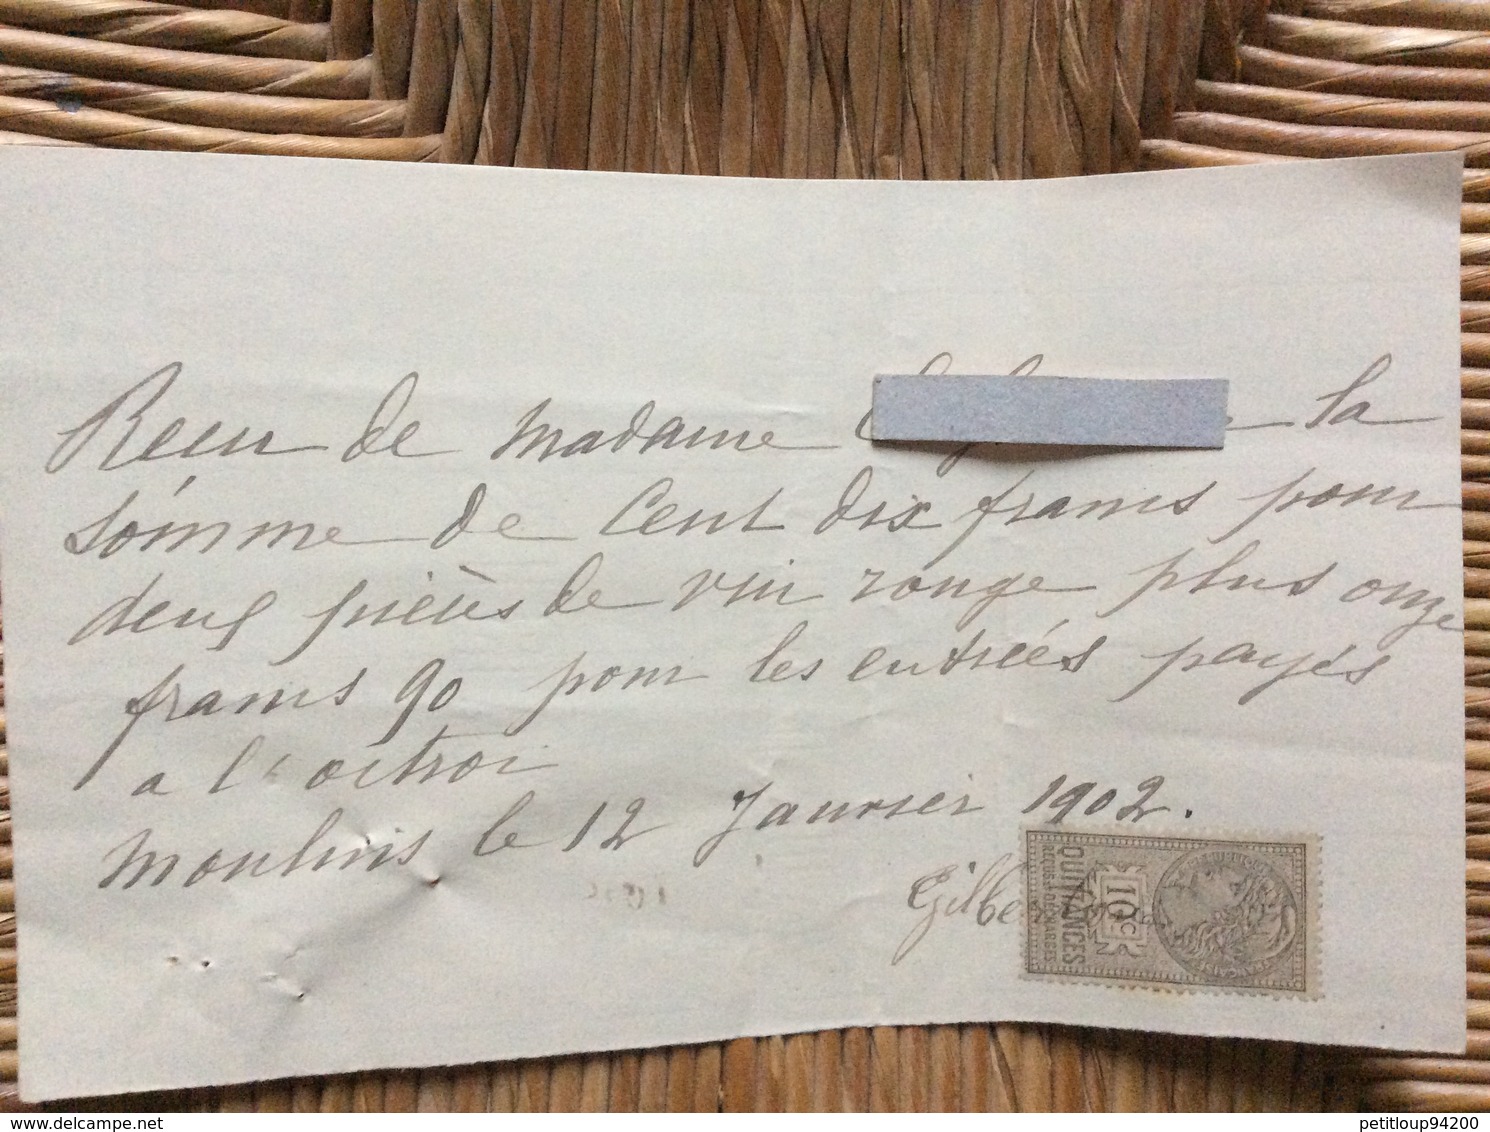 Recu de Madame la
somme de Cent dix francs pour
deux pièces de vin rouge plus onze
francs 90 pour les entreés payés
a l'octroi
Moulins le 12 Janvier 1902.
Gilbe
QUITTANCES
REÇUS & DÉCHARGES
10 c
RÉPUBLIQUE FRANÇAISE
www.delcampe.net
petitloup94200